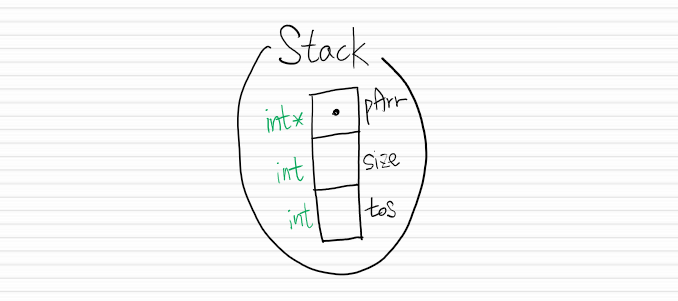 Stack
int* pArr
int size
int tos